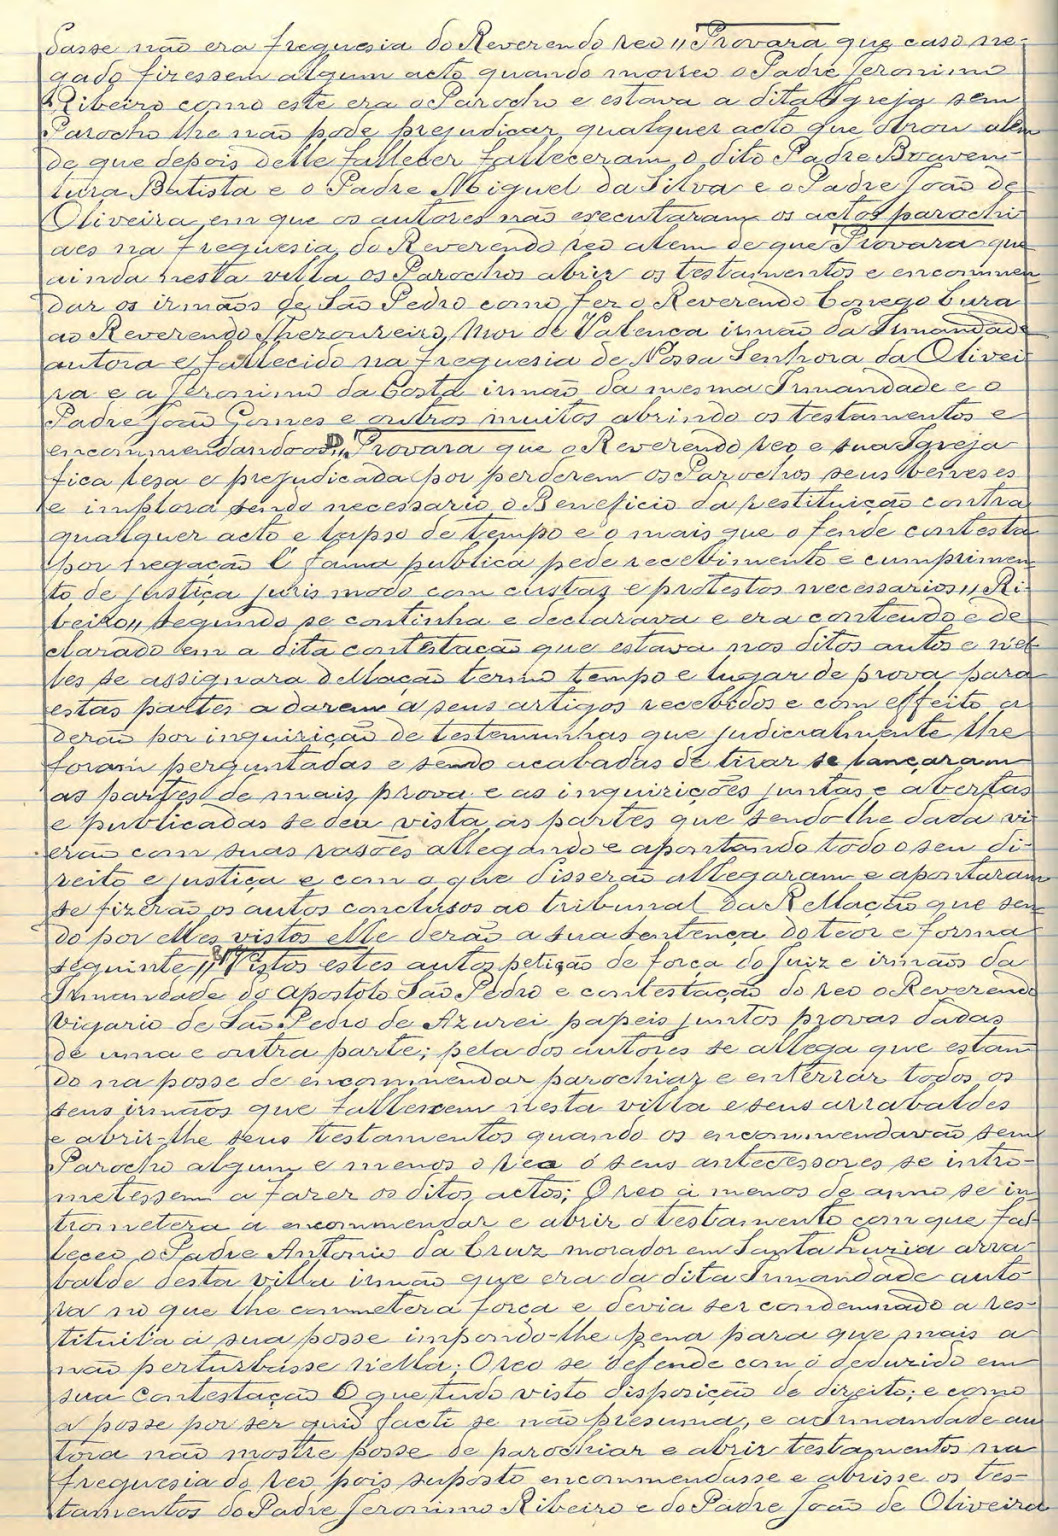 dasse não era freguesia do Reverendo reo,, Provara que caso ne-
gado fizessem algum acto quando morreo o Padre Jeronimo
Ribeiro como este era o Parocho e estava a dita Igreja sem
Parocho lhe não pode prejudicar qualquer acto que obrou alem
de que depois delle fallecer falleceram o dito Padre Boaven-
tura Batista e o Padre Miguel da Silva e o Padre João de
Oliveira em que os autores não executaram os actos parochi
aes na freguesia do Reverendo reo alem de que Provara que
ainda nesta villa os Parochos abrir os testamentos e encommen
dar os irmãos de São Pedro como fez o Reverendo Conego Cura
ao Reverendo Thezoureiro Mor de Valença irmão da Irmandade
autora e fallecido na freguesia de Nossa Senhora da Olivei
ra e a Jeronimo da Costa irmão da mesma Irmandade e o
Padre João Gomes e outros muitos abrindo os testamentos e
encommendandoos,, Provara que o Reverendo reo e sua Igreja
fica lesa e prejudicada por perderem os Parochos seus beneses
e implora sendo necessario o Beneficio da restituição contra
qualquer acto e lapso de tempo e o mais que ofende contesta
por negação l' fama publica pede recebimento e cumprimen
to de justiça juris modo com custas e protestos necessarios,, Ri-
beiro,, segundo se continha e declarava e era contendo e de
clarado em a dita contestação que estava nos ditos autos e nel-
les se assignara dellação termo tempo e lugar de prova para
estas partes a darem a seus artigos recebidos e com effeito a
derão por inquirição de testemunhas que judicialmente lhe
foram perguntadas e sendo acabadas de tirar se lançaram
as partes de mais prova e as inquirições juntas e abertas
e publicadas se deu vista ás partes que sendo lhe dada vi-
erão com suas rasões allegando e apontando todo o seu di-
reito e justiça e com o que disserão allegaram e apontaram
se fizerão os autos conclusos ao tribunal da Rellação que sen
do por elles vistos elle derão a sua sentença do teor e forma
seguinte,, Vistos estes autos petição de força do Juiz e irmãos da
Irmandade do Apostolo São Pedro e contestação do reo o Reverendo
Vigario de São Pedro de Azurei papeis juntos provas dadas
de uma e outra parte; pela dos autores se allega que estan
do na posse de encommendar parochiar e enterrar todos os
seus irmãos que fallecem nesta villa e seus arrabaldes
e abrir-lhe seus testamentos quando os encommendavão sem
Parocho algum e menos o reo ó seus antecessores se intro-
metessem a fazer os ditos actos; O reo á menos de anno se in
trometera a encommendar e abrir o testamento com que fal
leceo o Padre Antonio da Cruz morador em Santa Luzia arra-
balde desta villa irmão que era da dita Irmandade auto-
ra no que lhe commetera força e devia ser condemnado a res-
tituila á sua posse impondo-lhe pena para que mais a
não perturbasse nella; O reo se defende com o deduzido em
sua contestação O que tudo visto disposição de direito; e como
a posse por ser quid facti se não presuma, e a Irmandade au
tora não mostre posse de parochiar e abrir testamentos na
freguesia do reo pois suposto encommendasse e abrisse os tes-
tamentos do Padre Jeronimo Ribeiro e do Padre João de Oliveira